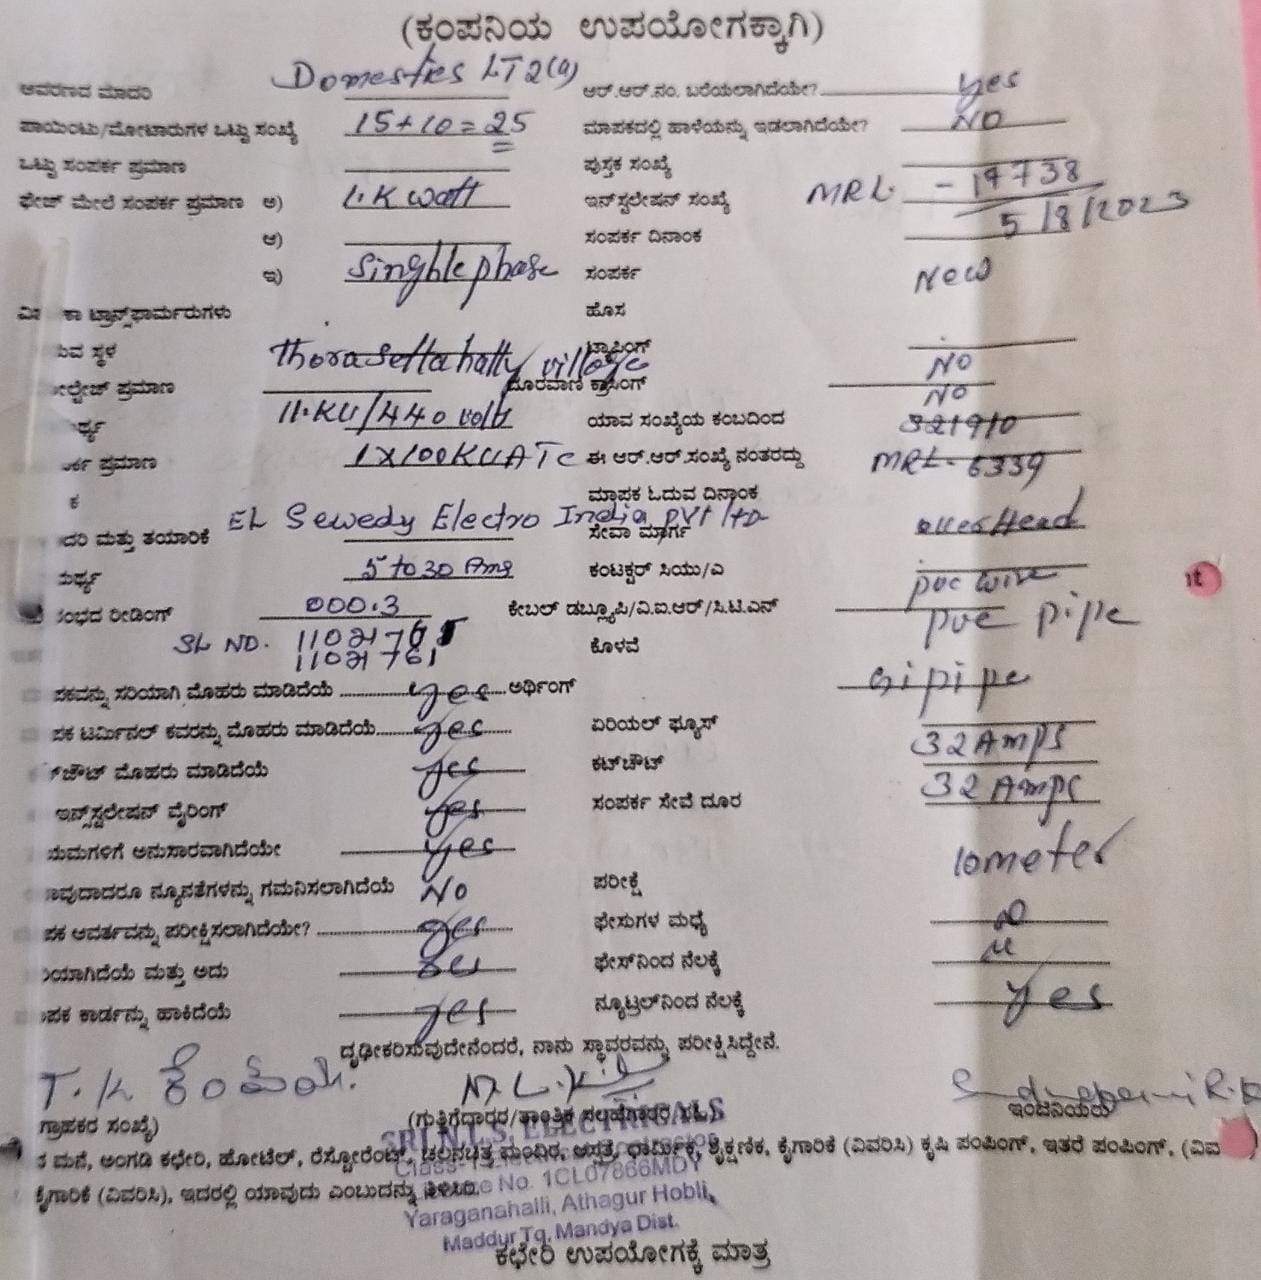 (ಕಂಪನಿಯ ಉಪಯೋಗಕ್ಕಾಗಿ)
ಆವರಣದ ಮಾದರಿ Domestics LT2(a) ಆರ್.ಆರ್.ನಂ. ಬರೆಯಲಾಗಿದೆಯೇ? yes
ಪಾಯಿಂಟು/ಮೋಟಾರುಗಳ ಒಟ್ಟು ಸಂಖ್ಯೆ 15+10=25 ಮಾಪಕದಲ್ಲಿ ಹಾಳೆಯನ್ನು ಇಡಲಾಗಿದೆಯೇ? NO
ಒಟ್ಟು ಸಂಪರ್ಕ ಪ್ರಮಾಣ ಪುಸ್ತಕ ಸಂಖ್ಯೆ
ಫೇಜ್ ಮೇಲೆ ಸಂಪರ್ಕ ಪ್ರಮಾಣ ಅ) 1.K watt ಇನ್‌ಸ್ಟಲೇಷನ್ ಸಂಖ್ಯೆ MRL - 17738
ಆ) ಸಂಪರ್ಕ ದಿನಾಂಕ 5/8/2023
ಇ) Singhle phase ಸಂಪರ್ಕ New
ಕಾ ಟ್ರಾನ್ಸ್‌ಫಾರ್ಮರುಗಳು ಹೊಸ
ಸ್ಥಳ Thorasettahatty village ಟ್ಯಾಪಿಂಗ್ NO
ಪ್ರಮಾಣ ದೂರವಾಣಿ ಕ್ರಾಸಿಂಗ್ NO
11.KV/440 volt ಯಾವ ಸಂಖ್ಯೆಯ ಕಂಬದಿಂದ 321910
ಪ್ರಮಾಣ 1X100KVA TC ಈ ಆರ್.ಆರ್.ಸಂಖ್ಯೆ ನಂತರದ್ದು MRL- 6339
ಮಾಪಕ ಓದುವ ದಿನಾಂಕ
ಮತ್ತು ತಯಾರಿಕೆ EL Sewedy Electro India PVt ltd ಸೇವಾ ಮಾರ್ಗ overHead
5 to 30 Amg ಕಂಟಕ್ಟರ್ ಸಿಯು/ಎ pvc wire
ರೀಡಿಂಗ್ 000.3 ಕೇಬಲ್ ಡಬ್ಲ್ಯೂಪಿ/ವಿ.ಐ.ಆರ್/ಸಿ.ಟಿ.ಎನ್ pvc pipe
SL NO. ಕೊಳವೆ
11021761
ಪಕವನ್ನು ಸರಿಯಾಗಿ ಮೊಹರು ಮಾಡಿದೆಯೆ yes ಅರ್ಥಿಂಗ್ Gi pipe
ಪಕ ಟರ್ಮಿನಲ್ ಕವರನ್ನು ಮೊಹರು ಮಾಡಿದೆಯೆ yes ಏರಿಯಲ್ ಫ್ಯೂಸ್ 32 Amps
ಮೊಹರು ಮಾಡಿದೆಯೆ yes ಕಟ್‌ಔಟ್ 32 Amps
ಇನ್ಸ್‌ಸ್ಟಲೇಷನ್ ವೈರಿಂಗ್ yes ಸಂಪರ್ಕ ಸೇವೆ ದೂರ
ಯಮಗಳಿಗೆ ಅನುಸಾರವಾಗಿದೆಯೇ yes 10meter
ಾವುದಾದರೂ ನ್ಯೂನತೆಗಳನ್ನು ಗಮನಿಸಲಾಗಿದೆಯೆ No ಪರೀಕ್ಷೆ
ಪಕ ಆವರ್ತವನ್ನು ಪರೀಕ್ಷಿಸಲಾಗಿದೆಯೇ? yes ಫೇಸುಗಳ ಮಧ್ಯೆ
ಯಾಗಿದೆಯೆ ಮತ್ತು ಅದು ಫೇಸ್‌ನಿಂದ ನೆಲಕ್ಕೆ
ಪಕ ಕಾರ್ಡನ್ನು ಹಾಕಿದೆಯೆ yes ನ್ಯೂಟ್ರಲ್‌ನಿಂದ ನೆಲಕ್ಕೆ yes
ದೃಢೀಕರಿಸುವುದೇನೆಂದರೆ, ನಾನು ಸ್ಥಾವರವನ್ನು ಪರೀಕ್ಷಿಸಿದ್ದೇನೆ.
T.K
ಗ್ರಾಹಕರ ಸಂಖ್ಯೆ) (ಗುತ್ತಿಗೆದಾರರ/ತಾಂತ್ರಿಕ ಸಲಹೆಗಾರರ ಇಂಜಿನಿಯರು
SRI N.L.S. ELECTRICALS
ಮನೆ, ಅಂಗಡಿ ಕಛೇರಿ, ಹೋಟೆಲ್, ರೆಸ್ಟೋರೆಂಟ್, ಚಲನಚಿತ್ರ ಮಂದಿರ, ಆಸ್ಪತ್ರೆ, ಧಾರ್ಮಿಕ, ಶೈಕ್ಷಣಿಕ, ಕೈಗಾರಿಕೆ (ವಿವರಿಸಿ) ಕೃಷಿ ಪಂಪಿಂಗ್, ಇತರೆ ಪಂಪಿಂಗ್, (ವಿವ
ಕೈಗಾರಿಕೆ (ವಿವರಿಸಿ), ಇದರಲ್ಲಿ ಯಾವುದು ಎಂಬುದನ್ನು ತಿಳಿಸಿರಿ.
No. 1CL07866MDY
Yaraganahalli, Athagur Hobli,
Maddur Tq, Mandya Dist.
ಕಛೇರಿ ಉಪಯೋಗಕ್ಕೆ ಮಾತ್ರ